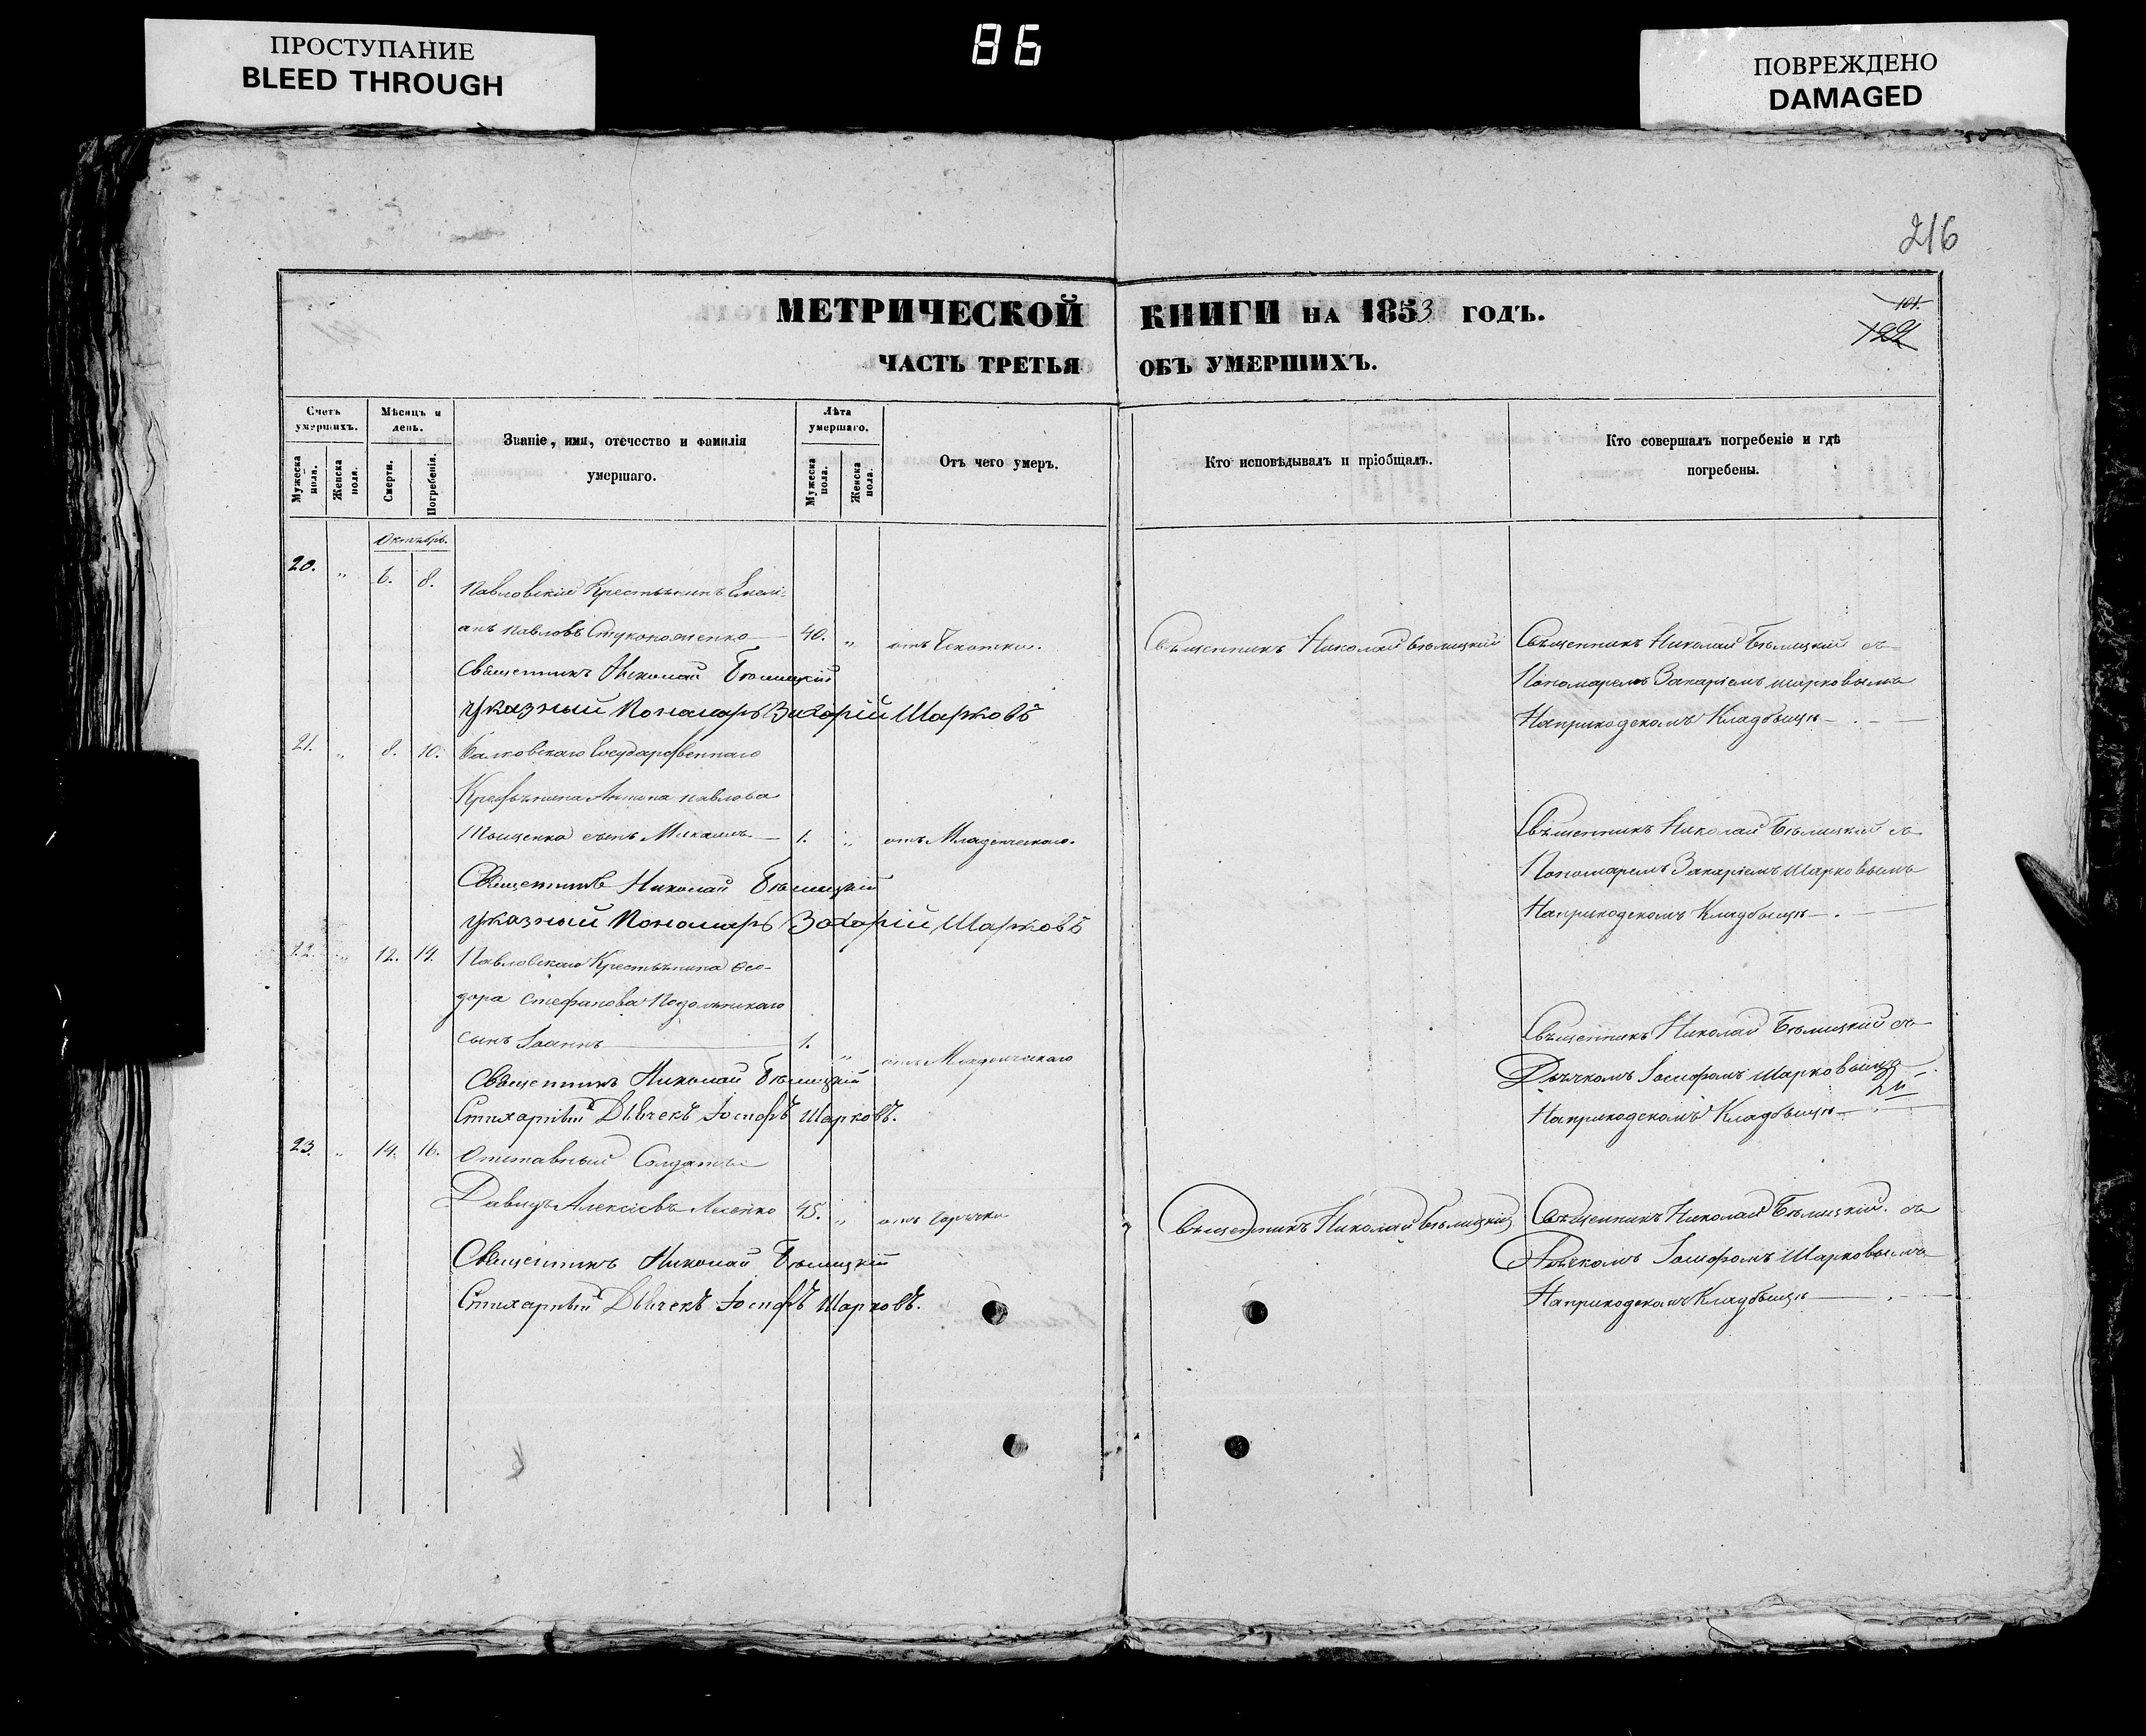 ПРОСТУПАНИЕ
BLEED THROUGH
86
ПОВРЕЖДЕНО
DAMAGED
216
МЕТРИЧЕСКОЙ КНИГИ НА 1853 ГОДЪ.
101.
122
ЧАСТЬ ТРЕТЬЯ ОБЪ УМЕРШИХЪ.
Счетъ умершихъ.
Мужеска пола.
Женска пола.
Мѣсяцъ и день.
Смерти.
Погребенія.
Званіе, имя, отечество и фамилія умершаго.
Лѣта умершаго.
Мужеска пола.
Женска пола.
Отъ чего умеръ.
Кто исповѣдывалъ и пріобщалъ.
Кто совершалъ погребеніе и гдѣ погребены.
Октябрь.
20. „ 6. 8. Павловскій Крестьянинъ Емелі-
анъ Павловъ 40. „ отъ Священникъ Николай Бѣлицкій Священникъ Николай Бѣлицкій съ
Священникъ Николай Бѣлицкій Пономаремъ Захаріемъ Шарковымъ
Указный Пономарь Захарій Шарковъ На приходскомъ Кладбищѣ
21. „ 8. 10. Государственнаго
Крестьянина Антона Павлова
сынъ Михаилъ 1. „ отъ Младенческаго. Священникъ Николай Бѣлицкій съ
Священникъ Николай Бѣлицкій Пономаремъ Захаріемъ Шарковымъ
Указный Пономарь Захарій Шарковъ На приходскомъ Кладбищѣ
22. „ 12. 14. Павловскаго Крестьянина Ѳео-
дора Стефанова
сынъ Іоаннъ 1. „ отъ Младенческаго Священникъ Николай Бѣлицкій съ
Священникъ Николай Бѣлицкій Дьячкомъ Іосифомъ Шарковымъ
Стихарный Дьячекъ Іосифъ Шарковъ. На приходскомъ Кладбищѣ
23. „ 14. 16. Отставный Солдатъ
Давидъ Алексіевъ 45. „ отъ Горячки Священникъ Николай Бѣлицкій Священникъ Николай Бѣлицкій съ
Священникъ Николай Бѣлицкій Дьячкомъ Іосифомъ Шарковымъ
Стихарный Дьячекъ Іосифъ Шарковъ. На приходскомъ Кладбищѣ